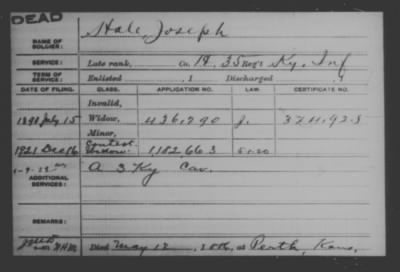 DEAD
NAME OF SOLDIER: Hale, Joseph
SERVICE: Late rank, Co. H, 35 Reg't Ky. Inf
TERM OF SERVICE: Enlisted , 1 Discharged , 1
DATE OF FILING. CLASS. APPLICATION NO. LAW. CERTIFICATE NO.
Invalid,
1890 July 15 Widow, 436,790 J.
Minor,
1921 Dec 16 Contest. Widow: 1,182,663
ADDITIONAL SERVICES: A 3 Ky Cav.
REMARKS:
Died May 12, at Perth, Kans.